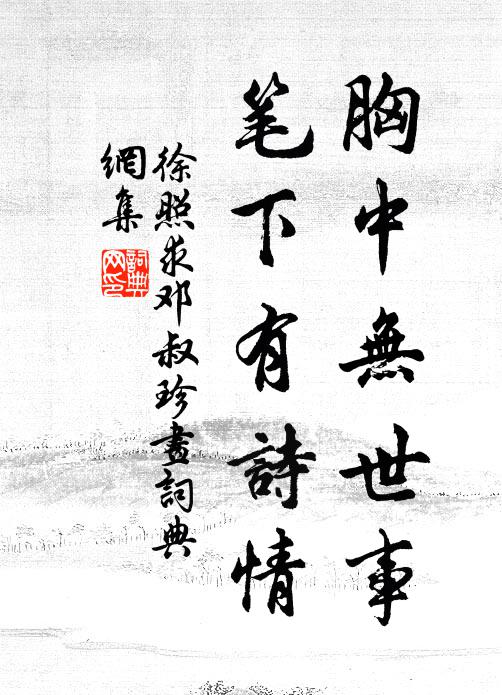 胸中無世事
笔下有詩情
徐照求邓叔珍畫詞典
網集
詞典
网印